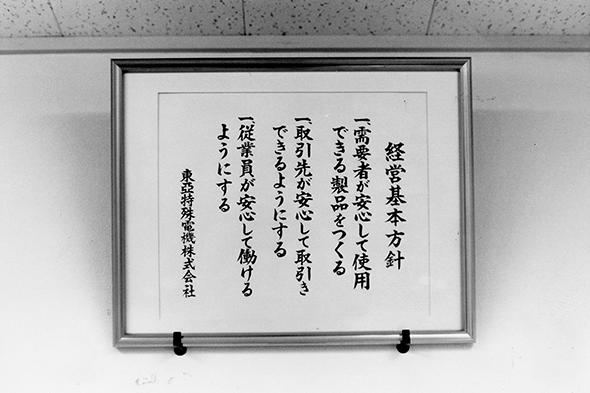 経営基本方針
一、需要者が安心して使用
できる製品をつくる
一、取引先が安心して取引き
できるようにする
一、従業員が安心して働ける
ようにする
東亞特殊電機株式会社